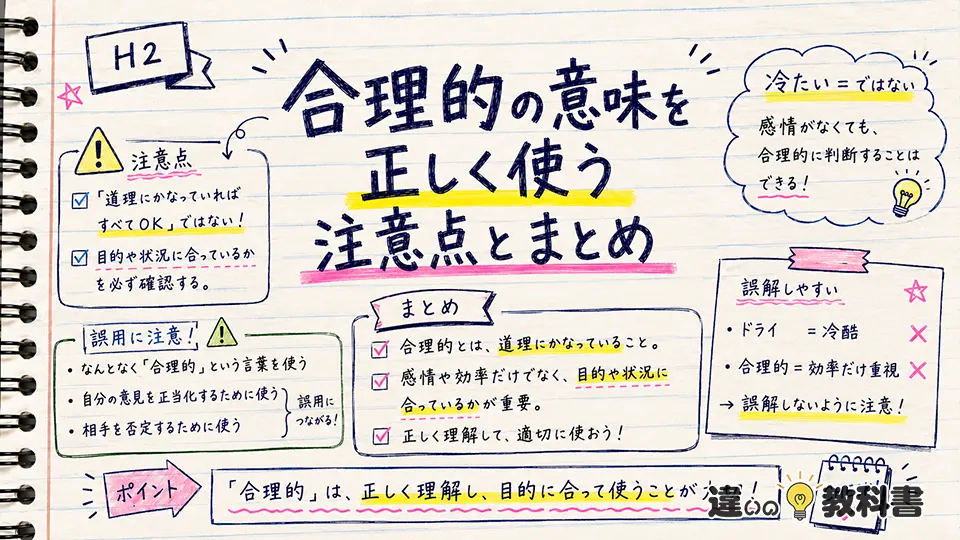 H2
合理的の意味を
正しく使う
注意点とまとめ
冷たい = ではない
感情がなくても、
合理的に判断することは
できる!
注意点
「道理にかなっていれば
すべてOK」ではない!
目的や状況に合っているか
を必ず確認する。
誤用に注意!
・なんとなく「合理的」という言葉を使う
・自分の意見を正当化するために使う
・相手を否定するために使う
誤用に
つながる!
まとめ
合理的とは、道理にかなっていること。
感情や効率だけでなく、目的や状況に
合っているかが重要。
正しく理解して、適切に使おう!
誤解しやすい
・ドライ = 冷酷 ×
・合理的 = 効率だけ重視 ×
→ 誤解しないように注意!
ポイント
「合理的」は、正しく理解し、目的に合って使うことが
違いの教科書